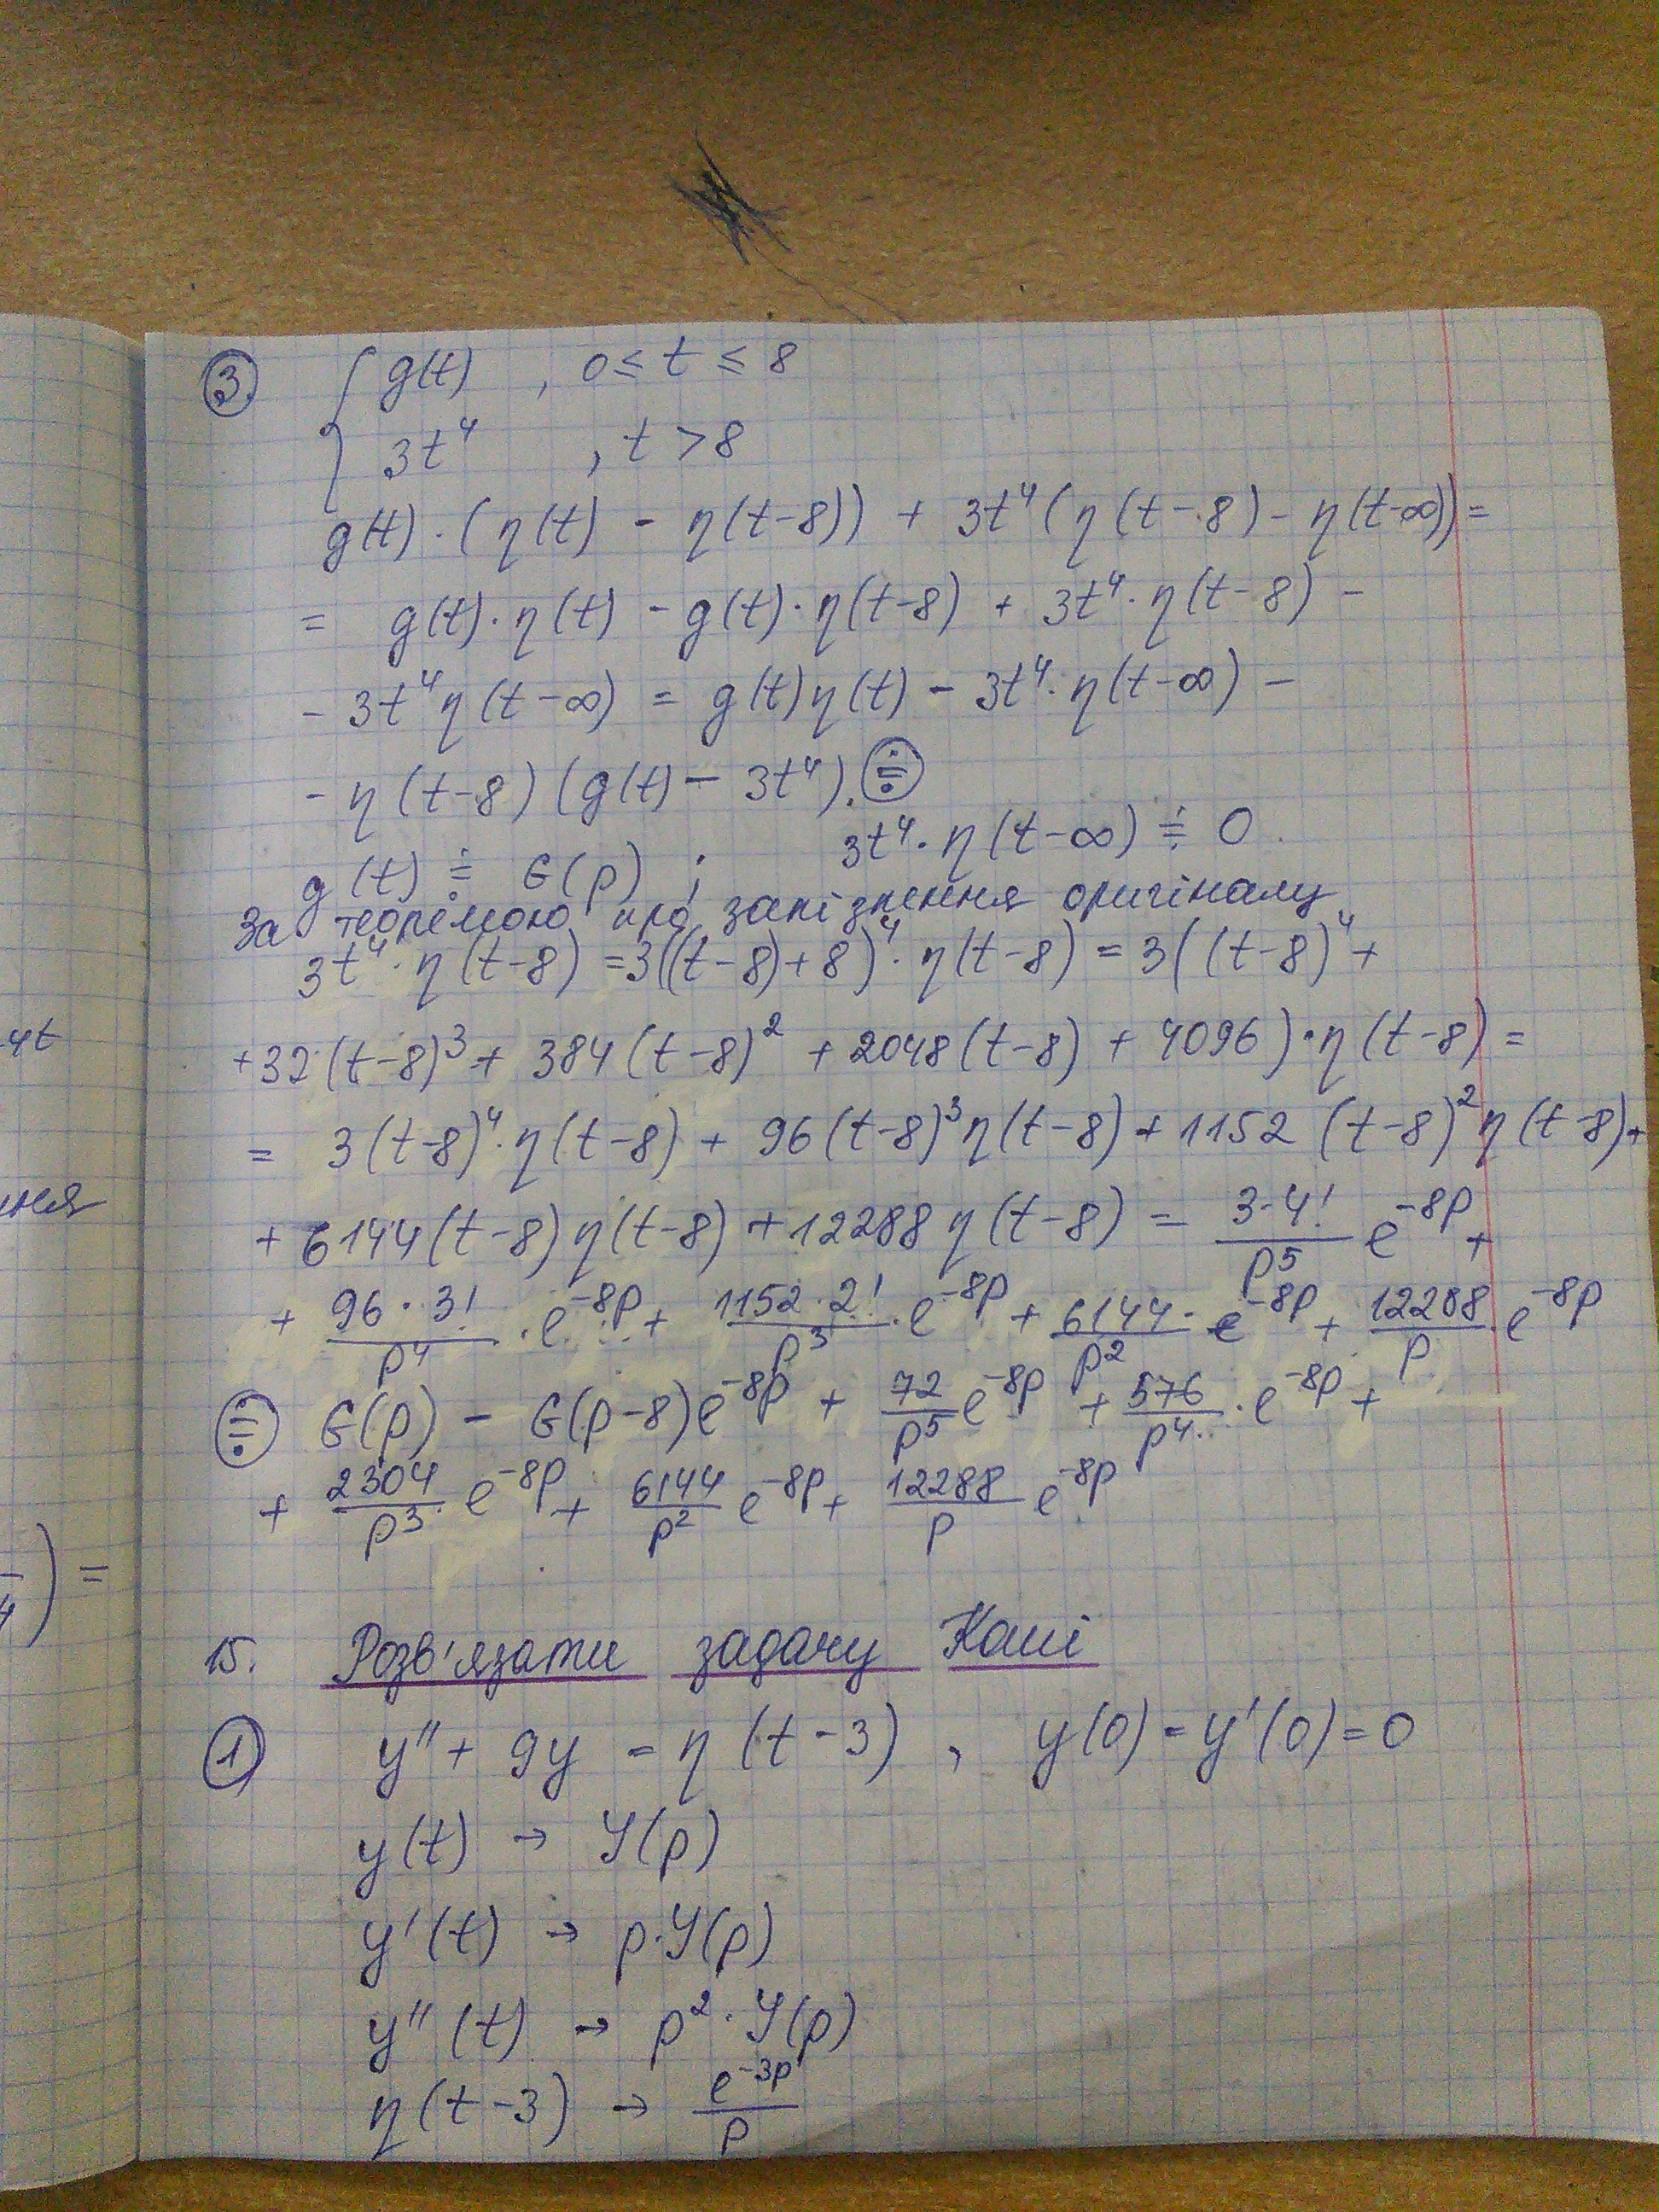 3. { g(t) , 0 ≤ t ≤ 8
3t⁴ , t > 8
g(t)·(η(t) - η(t-8)) + 3t⁴(η(t-8) - η(t-∞)) =
= g(t)·η(t) - g(t)·η(t-8) + 3t⁴·η(t-8) -
- 3t⁴η(t-∞) = g(t)η(t) - 3t⁴·η(t-∞) -
- η(t-8)(g(t) - 3t⁴). ≑
3t⁴·η(t-∞) ≑ 0.
g(t) ≑ G(p) ;
За теоремою про запізнення оригіналу
3t⁴·η(t-8) = 3((t-8)+8)⁴·η(t-8) = 3((t-8)⁴+
+32(t-8)³+ 384(t-8)² + 2048(t-8) + 4096)·η(t-8) =
= 3(t-8)⁴·η(t-8) + 96(t-8)³η(t-8) + 1152 (t-8)²η(t-8)+
+ 6144(t-8)η(t-8) + 12288η(t-8) = 3·4!/p⁵ e⁻⁸ᵖ +
+ 96·3!/p⁴ ·e⁻⁸ᵖ + 1152·2!/p³ ·e⁻⁸ᵖ + 6144/p² · e⁻⁸ᵖ + 12288/p · e⁻⁸ᵖ
≑ G(p) - G(p-8)e⁻⁸ᵖ + 72/p⁵ e⁻⁸ᵖ + 576/p⁴ · e⁻⁸ᵖ +
+ 2304/p³ · e⁻⁸ᵖ + 6144/p² e⁻⁸ᵖ + 12288/p e⁻⁸ᵖ
15. Розв'язати задачу Коші
1 y'' + 9y = η(t-3) , y(0) = y'(0) = 0
y(t) → Y(p)
y'(t) → p·Y(p)
y''(t) → p²·Y(p)
η(t-3) → e⁻³ᵖ/p
-4t
ння
) =